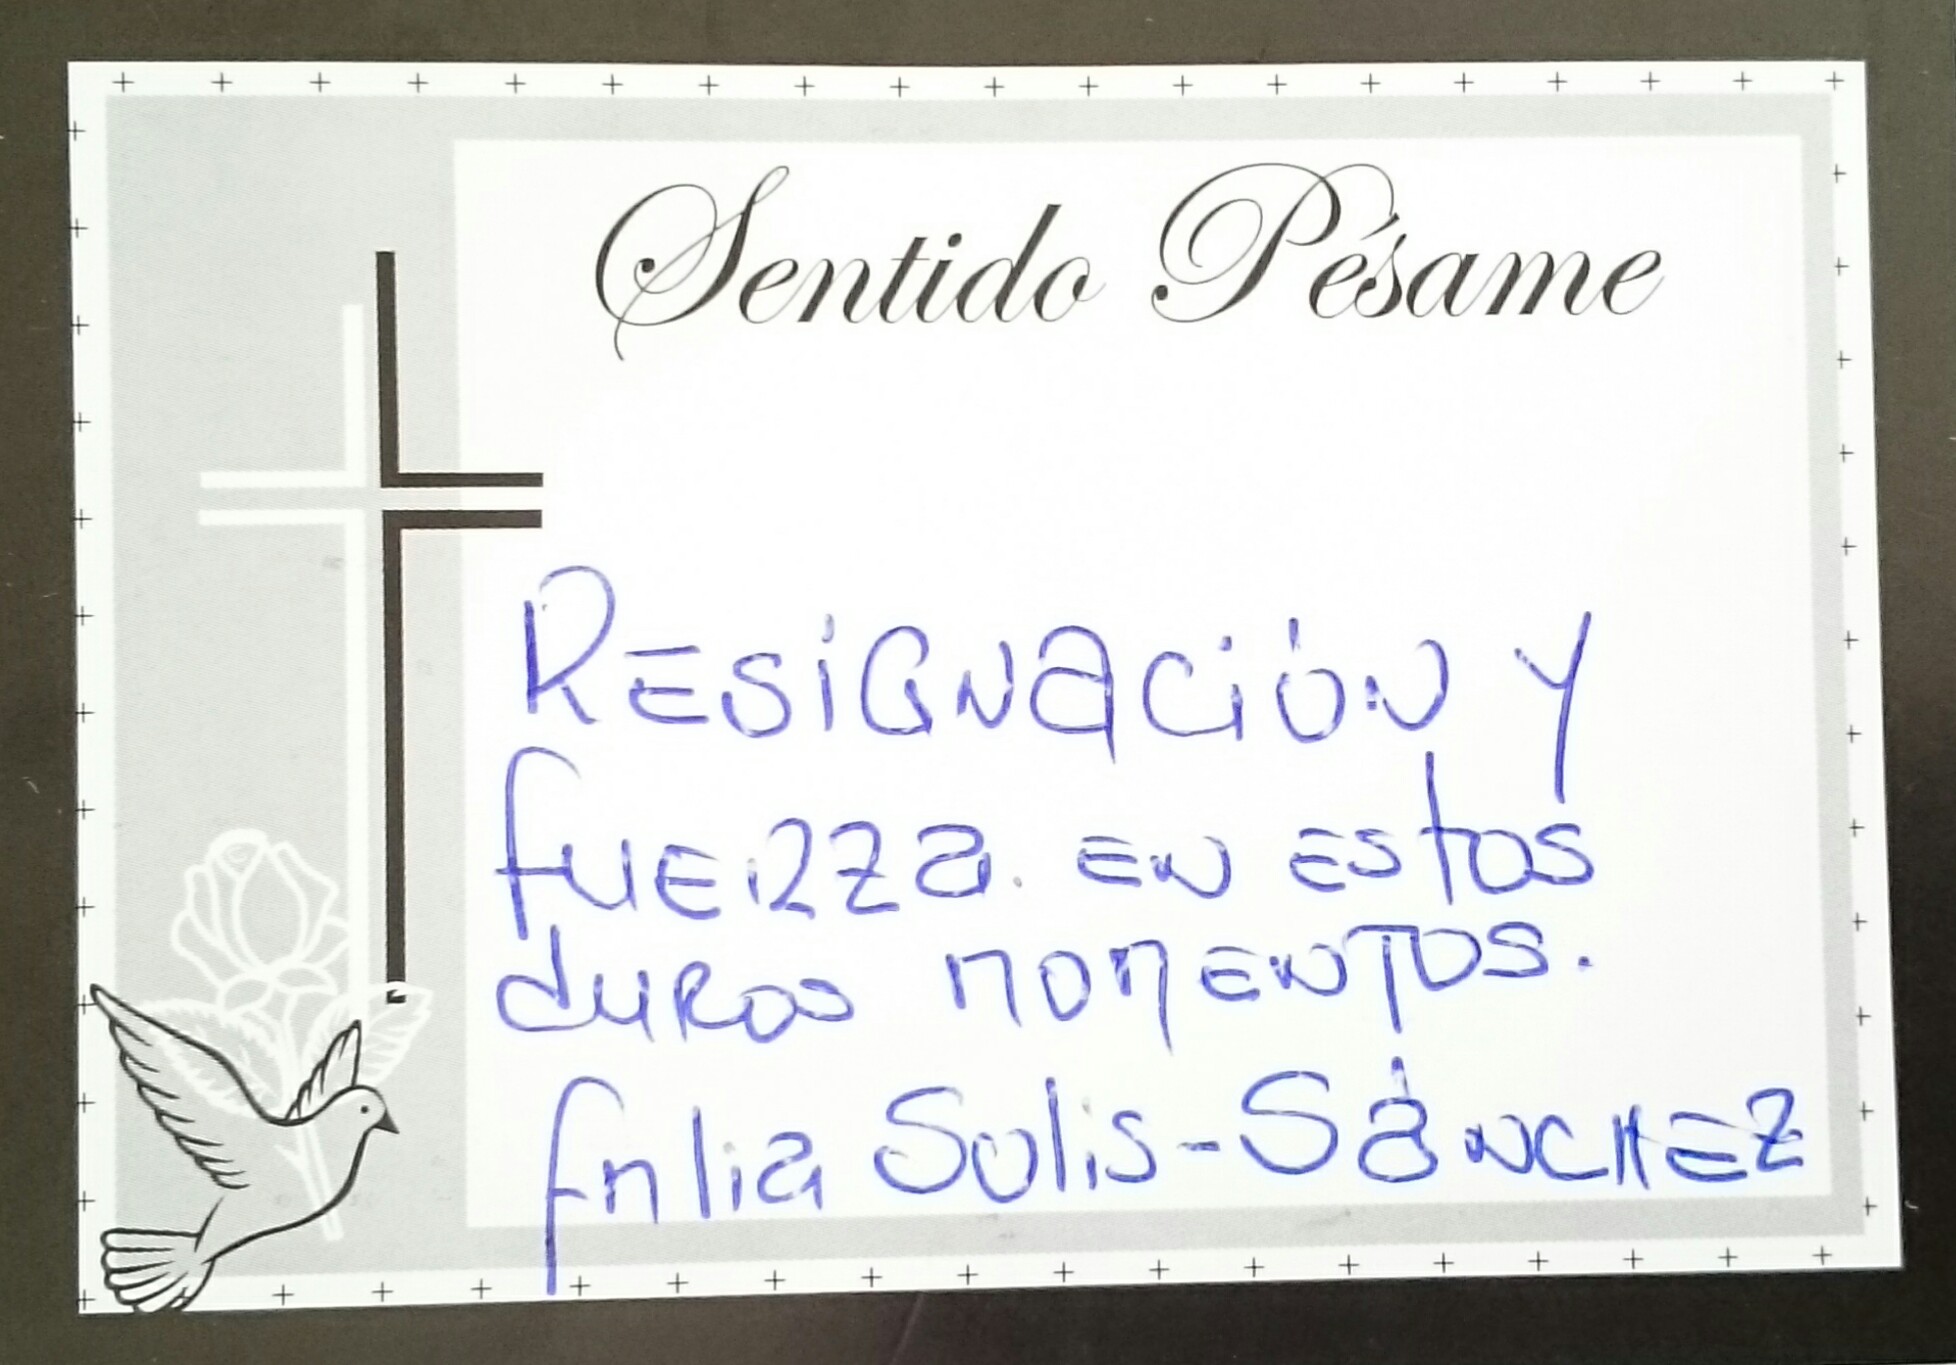 Sentido Pésame
RESIGNACIÓN Y
fUERZA EN ESTOS
dUROS MOMENTOS.
fmlia Solis-SÁNCHEZ